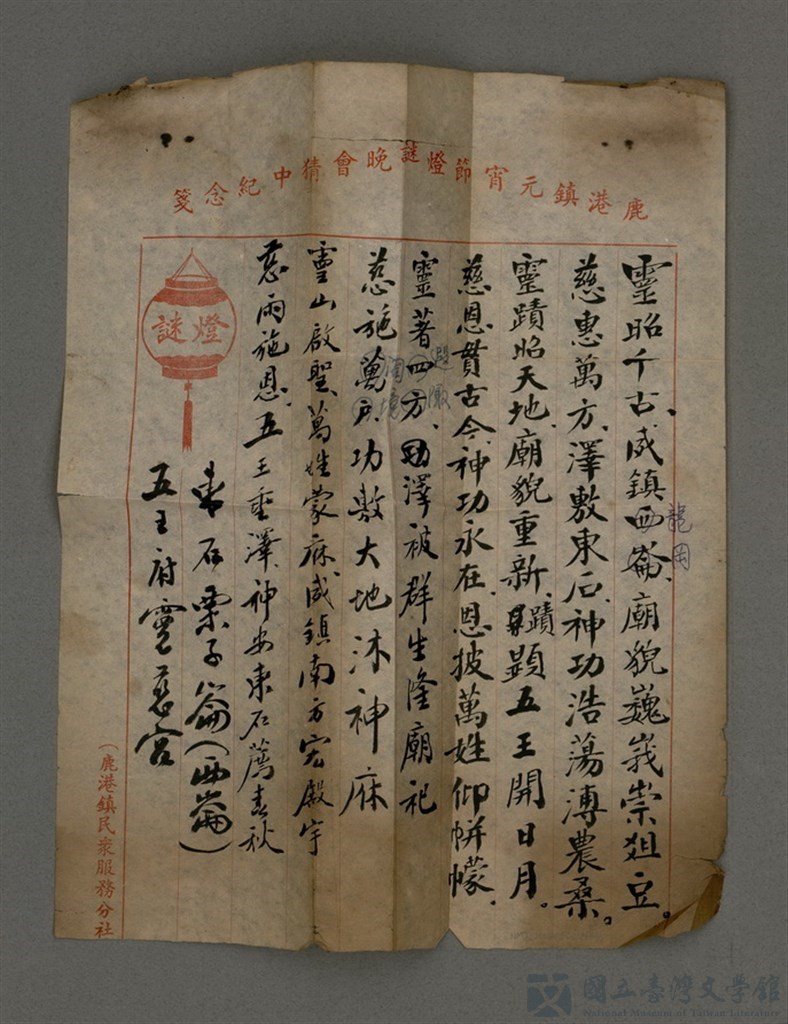 鹿港鎮元宵節燈謎晚會猜中紀念箋
靈昭千古、威鎮西崙、廟貌巍峩崇俎豆。
龍岡
慈惠萬方、澤敷東石、神功浩蕩溥農桑。
靈蹟昭天地、廟貌重新、蹟顯五王開日月。
慈恩貫古今、神功永在、恩披萬姓仰帡幪。
靈著四方、澤被群生隆廟祀
慈施萬戶、功敷大地沐神庥
靈山啟聖、萬姓蒙庥、威鎮南方宏殿宇
慈雨施恩、五王垂澤、神安東石薦春秋
東石栗子崙(西崙)
五王府靈慈宮
燈謎
(鹿港鎮民衆服務分社
國立臺灣文學館
National Museum of Taiwan Literature